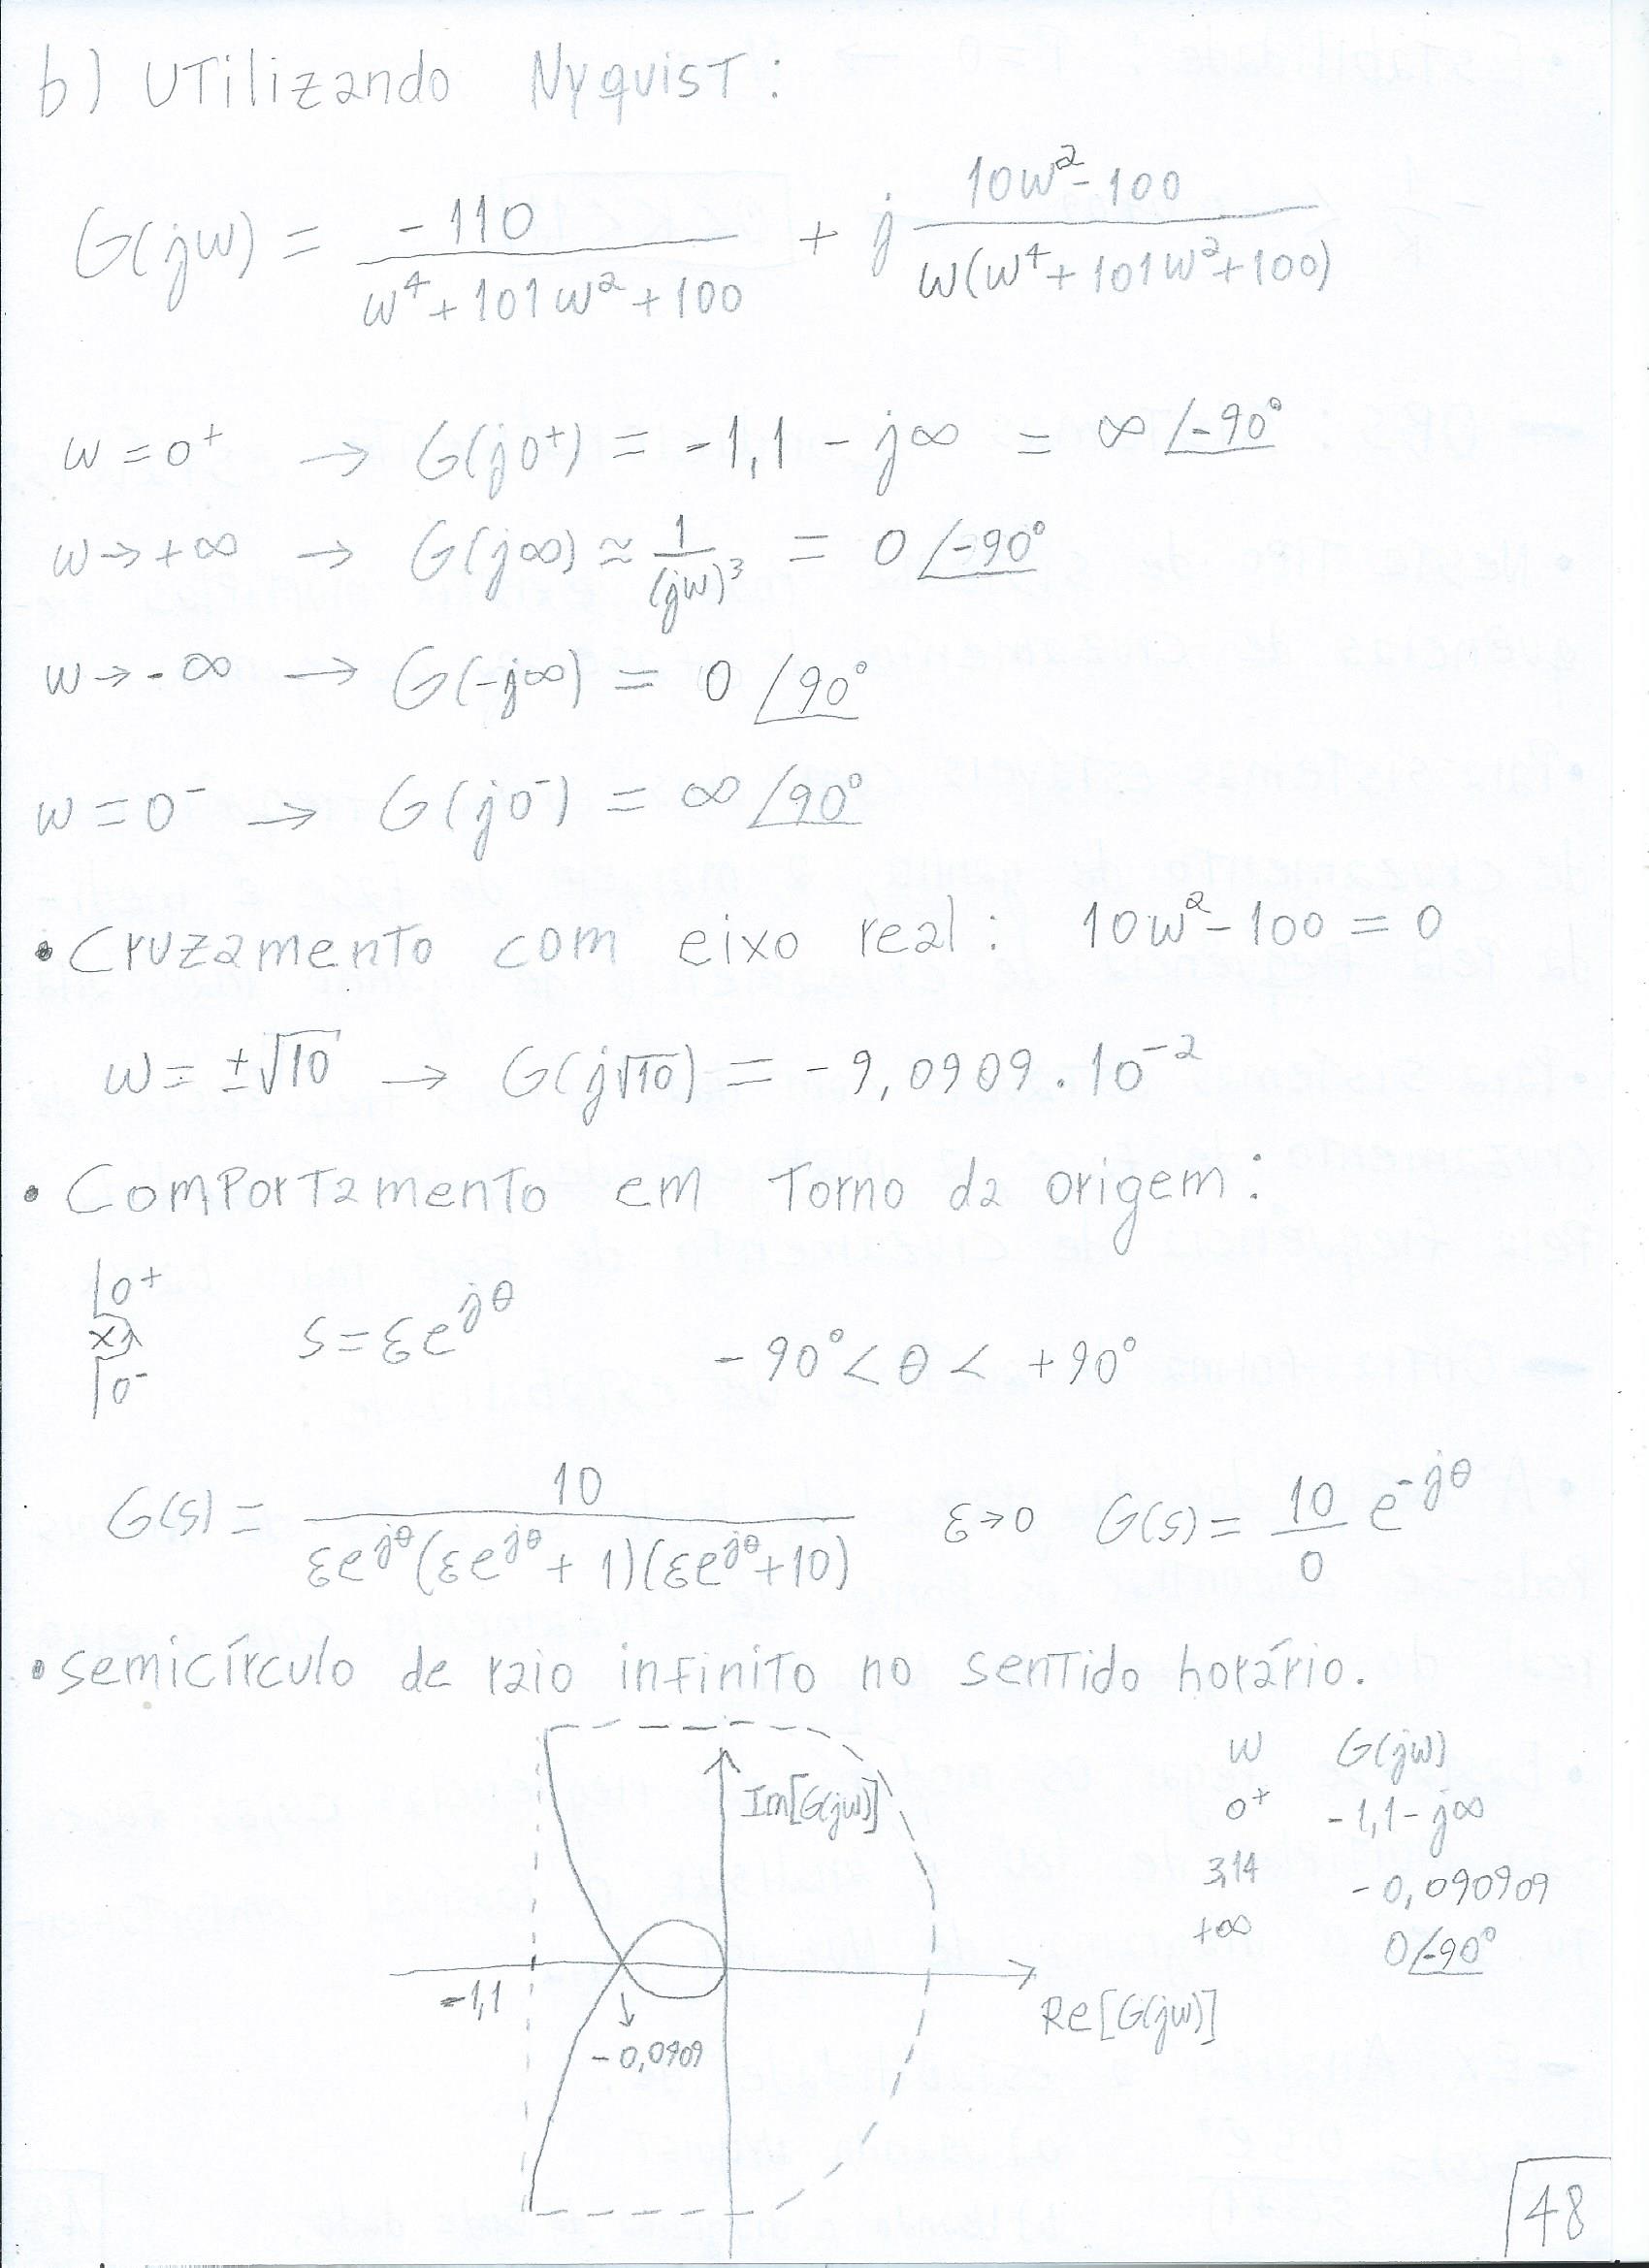 b) Utilizando Nyquist:
G(jw) = -110 / (w⁴ + 101w² + 100) + j (10w² - 100) / (w(w⁴ + 101w² + 100))
w = 0⁺ → G(j0⁺) = -1,1 - j∞ = ∞ ∠-90°
w → +∞ → G(j∞) ≈ 1/(jw)³ = 0 ∠-90°
w → -∞ → G(-j∞) = 0 ∠90°
w = 0⁻ → G(j0⁻) = ∞ ∠90°
• Cruzamento com eixo real: 10w² - 100 = 0
w = ±√10 → G(j√10) = -9,0909 . 10⁻²
• Comportamento em Torno da origem:
0⁺
x
0⁻
s = εe^{jθ} -90° < θ < +90°
G(s) = 10 / (εe^{jθ}(εe^{jθ} + 1)(εe^{jθ} + 10)) ε → 0 G(s) = 10/0 e^{-jθ}
• semicírculo de raio infinito no sentido horário.
Im[G(jw)]
-1,1
-0,0909
Re[G(jw)]
w G(jw)
0⁺ -1,1 - j∞
3,14 -0,090909
+∞ 0∠-90°
48